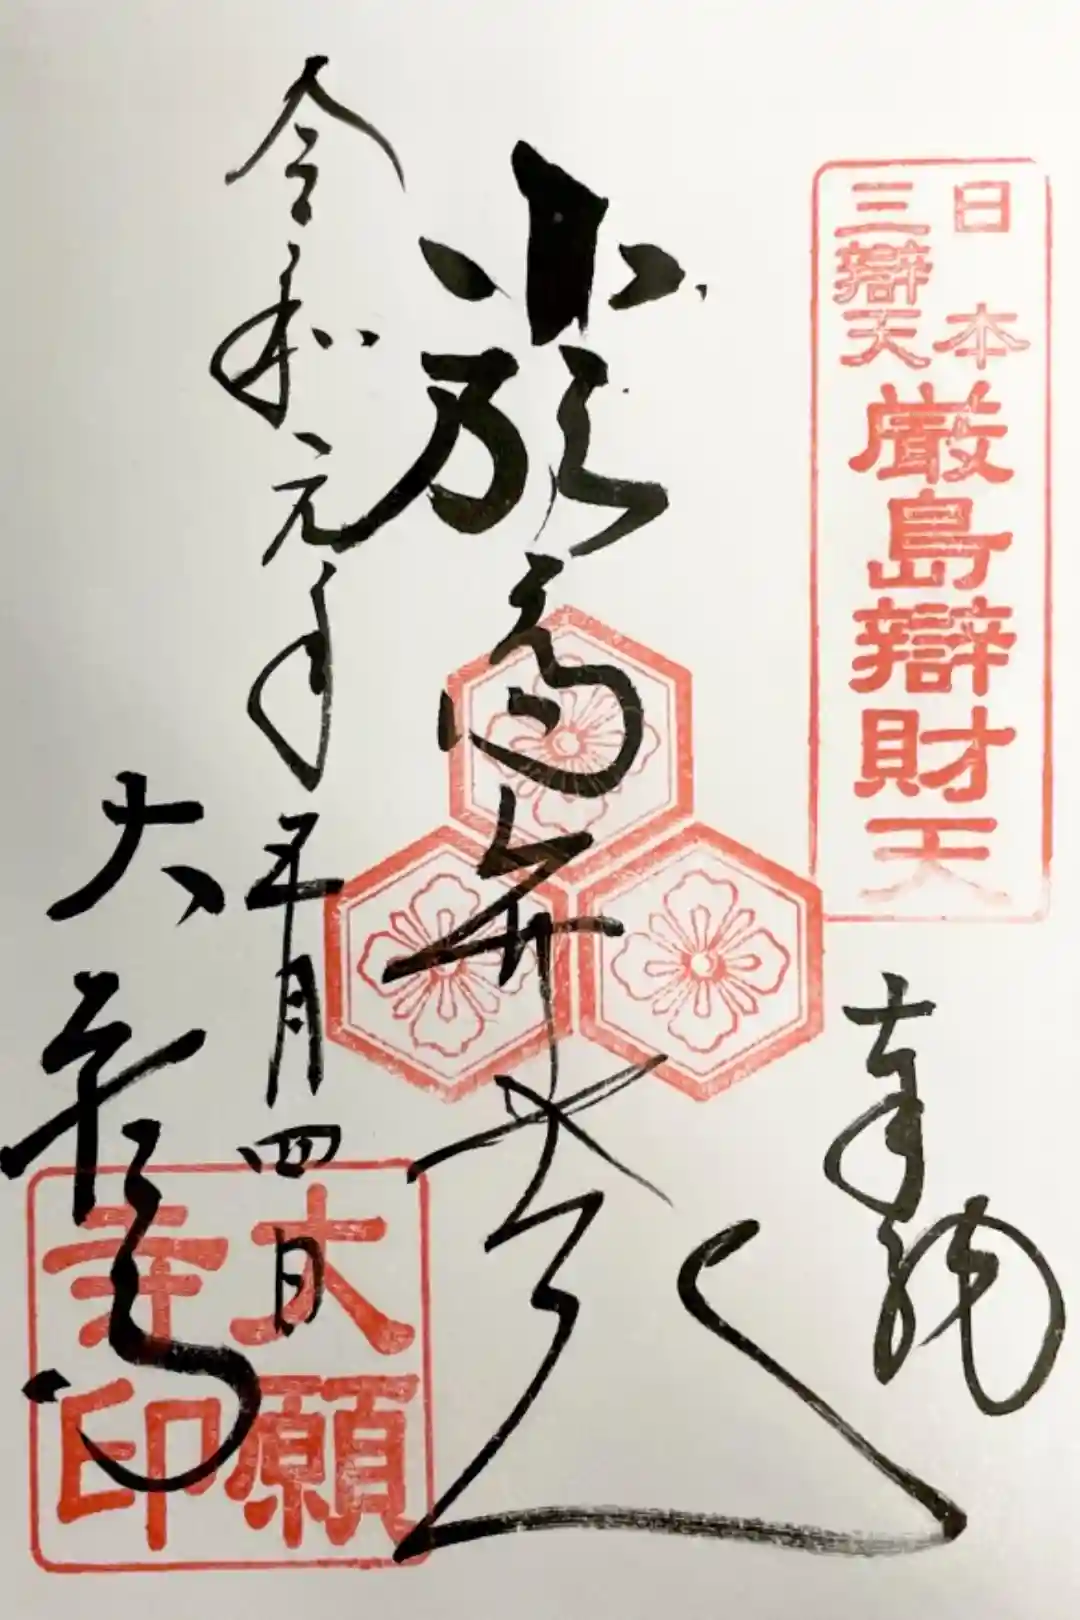 日本
三辯天
厳島辯財天
奉納
令和元年五月四日
大願寺
大願
寺印